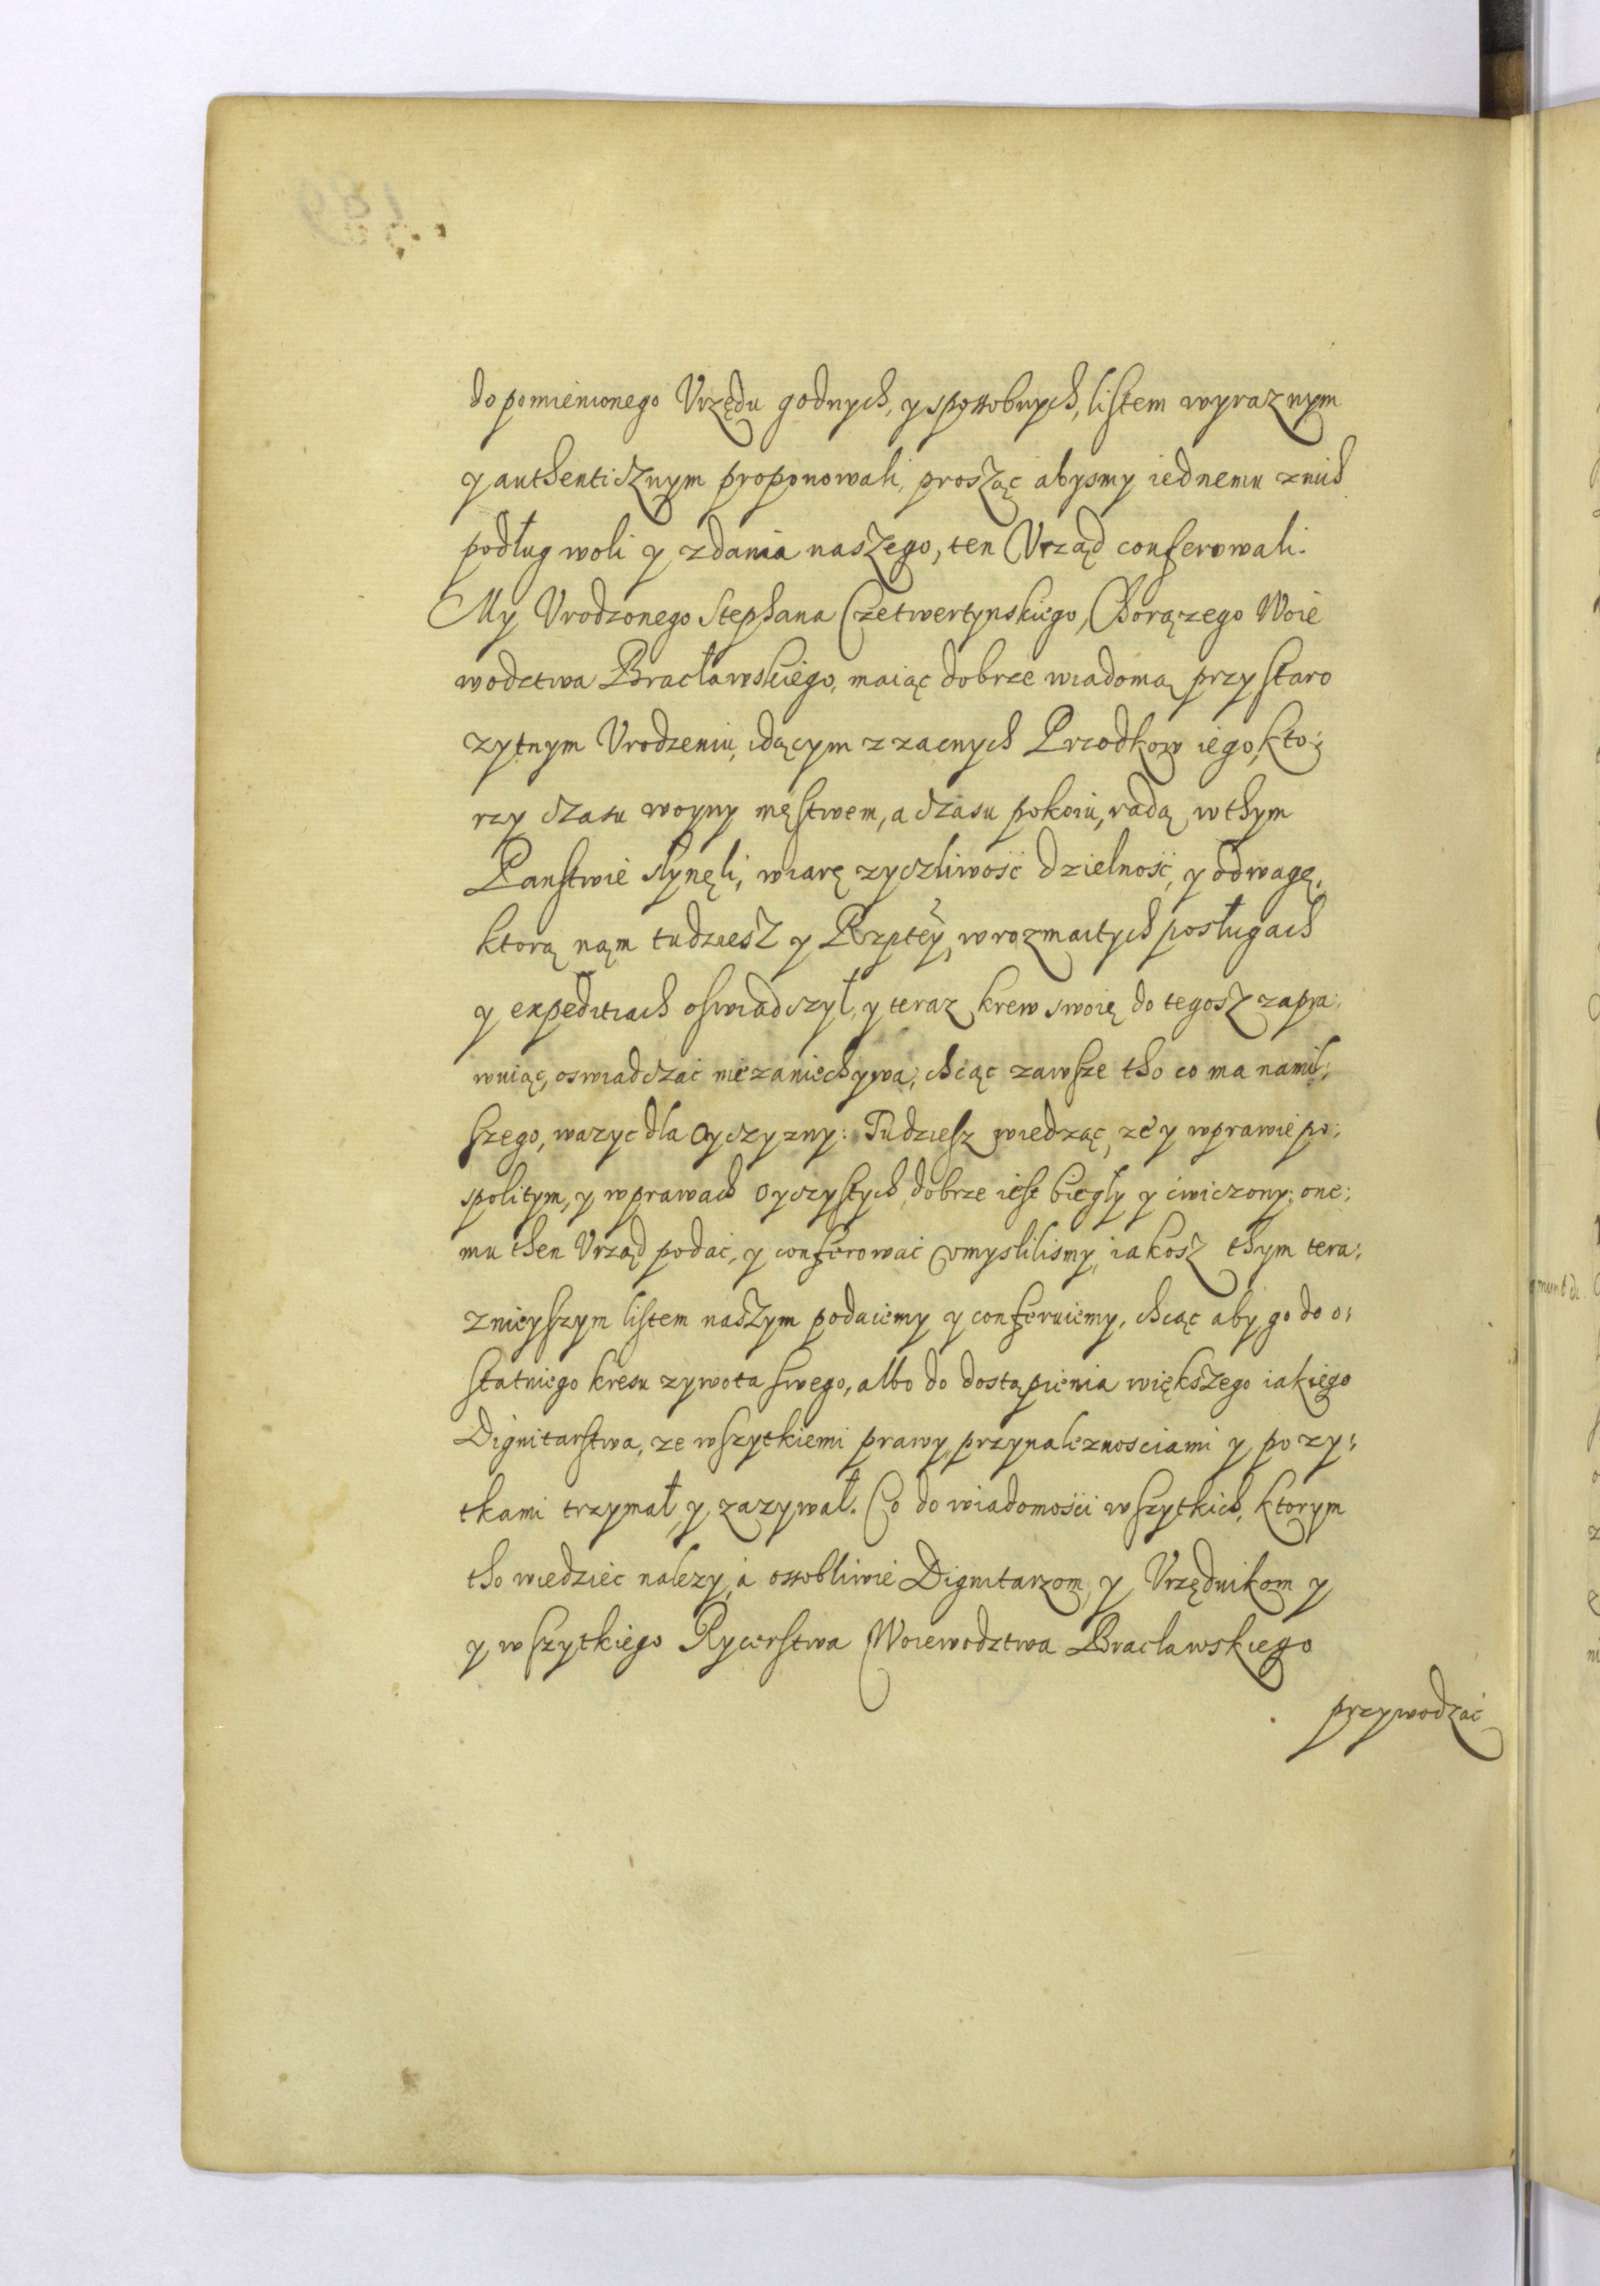 do pomienionego Vrzędu godnych, y spossobnych, listem wyraznym
y authenticznym proponowali, prosząc abysmy iednemu znich
podług woli y zdania naszego, ten Vrząd conferowali.
My Vrodzonego Stephana Czetwertynskiego, Chorązego Woie
wodztwa Bracławskiego, maiąc dobrze wiadomą przy staro
zytnym Vrodzeniu, idącym z zacnych Przodkow iego, kto:
rzy czasu woyny męstwem, a czasu pokoiu, radą w thym
Panstwie słynęli, wiarę zyczliwość dzielność, y odwagę,
ktorą nąm tudziesz y Rzptey, w rozmaitych posługach
y expeditiach oswiadczył, y teraz krew swoię do tegosz zapra:
wuiąc, oswiadczać niezaniechywa, chcąc zawsze tho co ma namil:
szego, wazyc dla Oyczyzny: Tudziesz wiedząc, ze y wprawie po:
spolitym, y wprawach oyczystych, dobrze iest biegły y ćwiczony; one:
mu then Vrząd podać, y conferować vmyslilismy, iakosz thym tera:
znieyszym listem naszym podaiemy y conferuiemy, chcąc aby go do o:
statniego kresu zywota swego, albo do dostąpienia większego iakiego
Dignitarstwa, ze wszytkiemi prawy, przynaleznosciami y pozy:
tkami trzymał, y zazywał. Co do wiadomości wszytkich, ktorym
tho wiedzieć nalezy, a ossobliwie Dignitarzom, y Vrzędnikom y
y wszytkiego Rycerstwa Woiewodztwa Bracławskiego
przywodząc